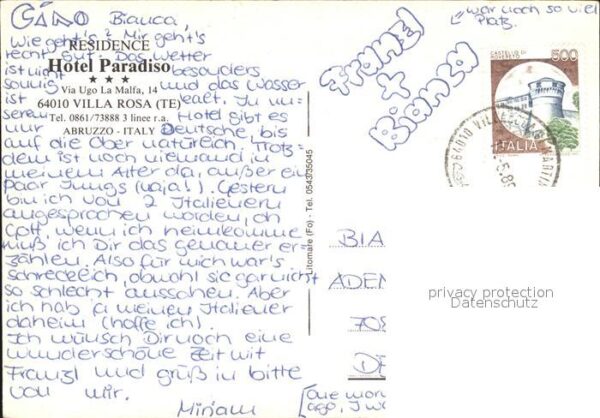 CIAO Bianca,
Wie geht's? Mir geht's
recht gut. Das Wetter
ist nicht besonders
sonnig und das Wasser
ist kalt. In un-
serem Hotel gibt es
nur Deutsche, bis
auf die Ober natürlich. Trotz-
dem ist noch niemand in
meinem Alter da, außer ein
paar Jungs (naja!). Gestern
bin ich von 2 Italienern
angesprochen worden, oh
Gott, wenn ich heimkomme
muß ich Dir das genauer er-
zählen. Also für mich war's
schrecklich, obwohl sie gar nicht
so schlecht aussahen. Aber
ich hab ja meinen Italiener
daheim (hoffe ich).
Ich wünsch Dir noch eine
wunderschöne Zeit mit
Franzl und grüß in bitte
von mir.
Miriam
RESIDENCE
Hotel Paradiso
★ ★ ★
Via Ugo La Malfa, 14
64010 VILLA ROSA (TE)
Tel. 0861/73888 3 linee r.a.
ABRUZZO - ITALY
Litomare (Fo) - Tel. 0543/35045
Franzl
+
Bianca
war noch so viel
Platz.
CASTELLO DI
ROVERETO
500
ITALIA
64010 VILLA
BIA
ADEN
DE
privacy protection
Datenschutz
ago, I w